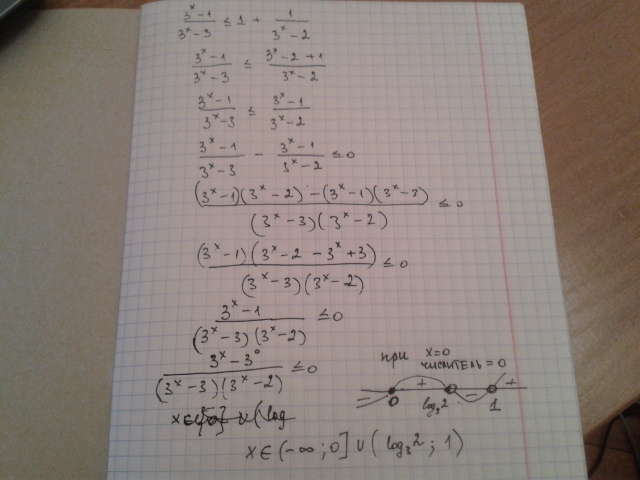 (3^x − 1)/(3^x − 3) ≤ 1 + 1/(3^x − 2)
(3^x − 1)/(3^x − 3) ≤ (3^x − 2 + 1)/(3^x − 2)
(3^x − 1)/(3^x − 3) ≤ (3^x − 1)/(3^x − 2)
(3^x − 1)/(3^x − 3) − (3^x − 1)/(3^x − 2) ≤ 0
((3^x − 1)(3^x − 2) − (3^x − 1)(3^x − 3))/((3^x − 3)(3^x − 2)) ≤ 0
((3^x − 1)(3^x − 2 − 3^x + 3))/((3^x − 3)(3^x − 2)) ≤ 0
(3^x − 1)/((3^x − 3)(3^x − 2)) ≤ 0
(3^x − 3^0)/((3^x − 3)(3^x − 2)) ≤ 0
при x=0
числитель = 0
− + − +
0 log₃2 1
x ∈ (−∞; 0] ∪ (log₃2; 1)